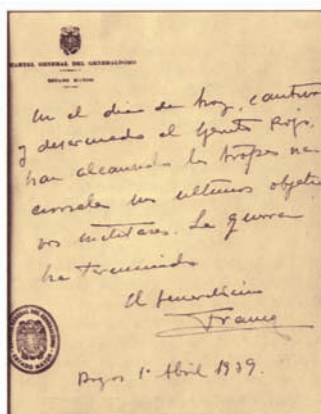 CUARTEL GENERAL DEL GENERALÍSIMO
ESTADO MAYOR
En el dia de hoy, cautivo
y desarmado el Ejercito Rojo,
han alcanzado las tropas na-
cionales sus ultimos objeti-
vos militares. La guerra
ha terminado
El Generalisimo
Franco
Burgos 1º Abril 1939.
GENERAL DEL GENERALÍSIMO
ESTADO MAYOR